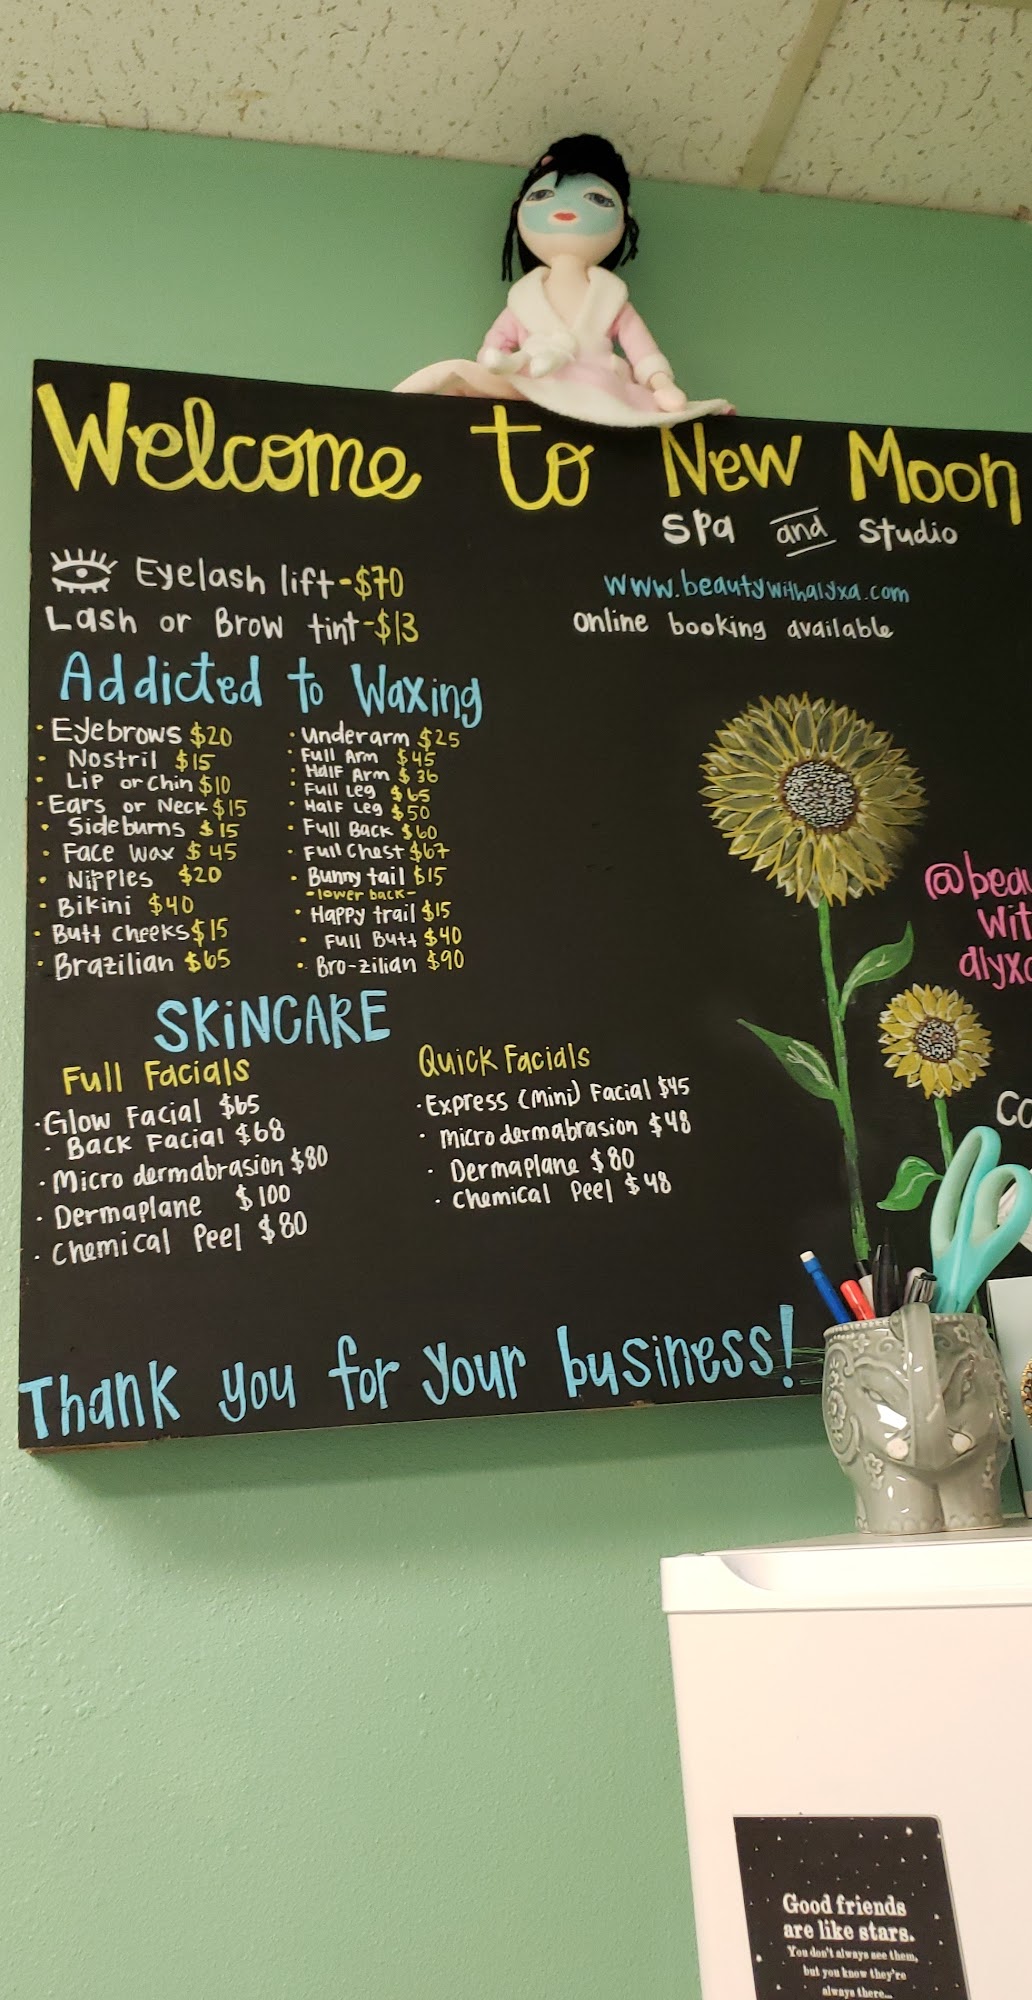 Welcome to New Moon
Spa and Studio
Eyelash lift-$70
Lash or Brow tint-$13
www.beautywithalyxa.com
online booking available
Addicted to Waxing
· Eyebrows $20
· Nostril $15
· Lip or Chin $10
· Ears or Neck $15
· Sideburns $15
· Face Wax $45
· Nipples $20
· Bikini $40
· Butt cheeks $15
· Brazilian $65
· Underarm $25
· Full Arm $45
· Half Arm $36
· Full Leg $65
· Half Leg $50
· Full Back $60
· Full Chest $67
· Bunny tail $15
-lower back-
· Happy trail $15
· Full Butt $40
· Bro-zilian $90
@beau
wit
alyxa
SKiNCARE
Full Facials
· Glow Facial $65
· Back Facial $68
· Micro dermabrasion $80
· Dermaplane $100
· Chemical Peel $80
Quick Facials
· Express (Mini) Facial $45
· Microdermabrasion $48
· Dermaplane $80
· Chemical Peel $48
Co
Thank you for your business!
Good friends
are like stars.
You don't always see them,
but you know they're
always there...